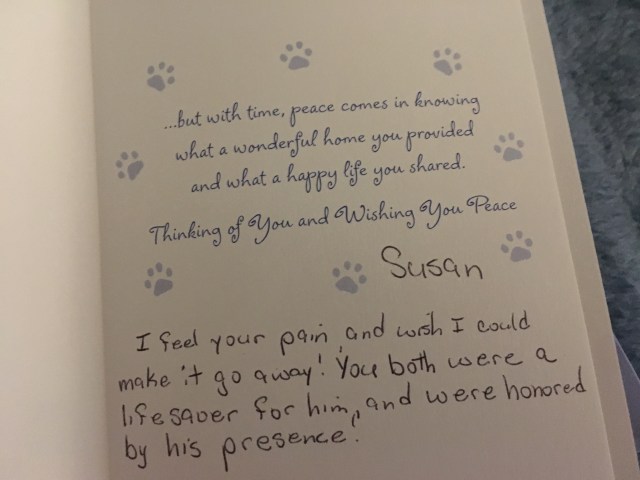 ...but with time, peace comes in knowing
what a wonderful home you provided
and what a happy life you shared.
Thinking of You and Wishing You Peace
Susan
I feel your pain, and wish I could
make it go away! You both were a
lifesaver for him, and were honored
by his presence!